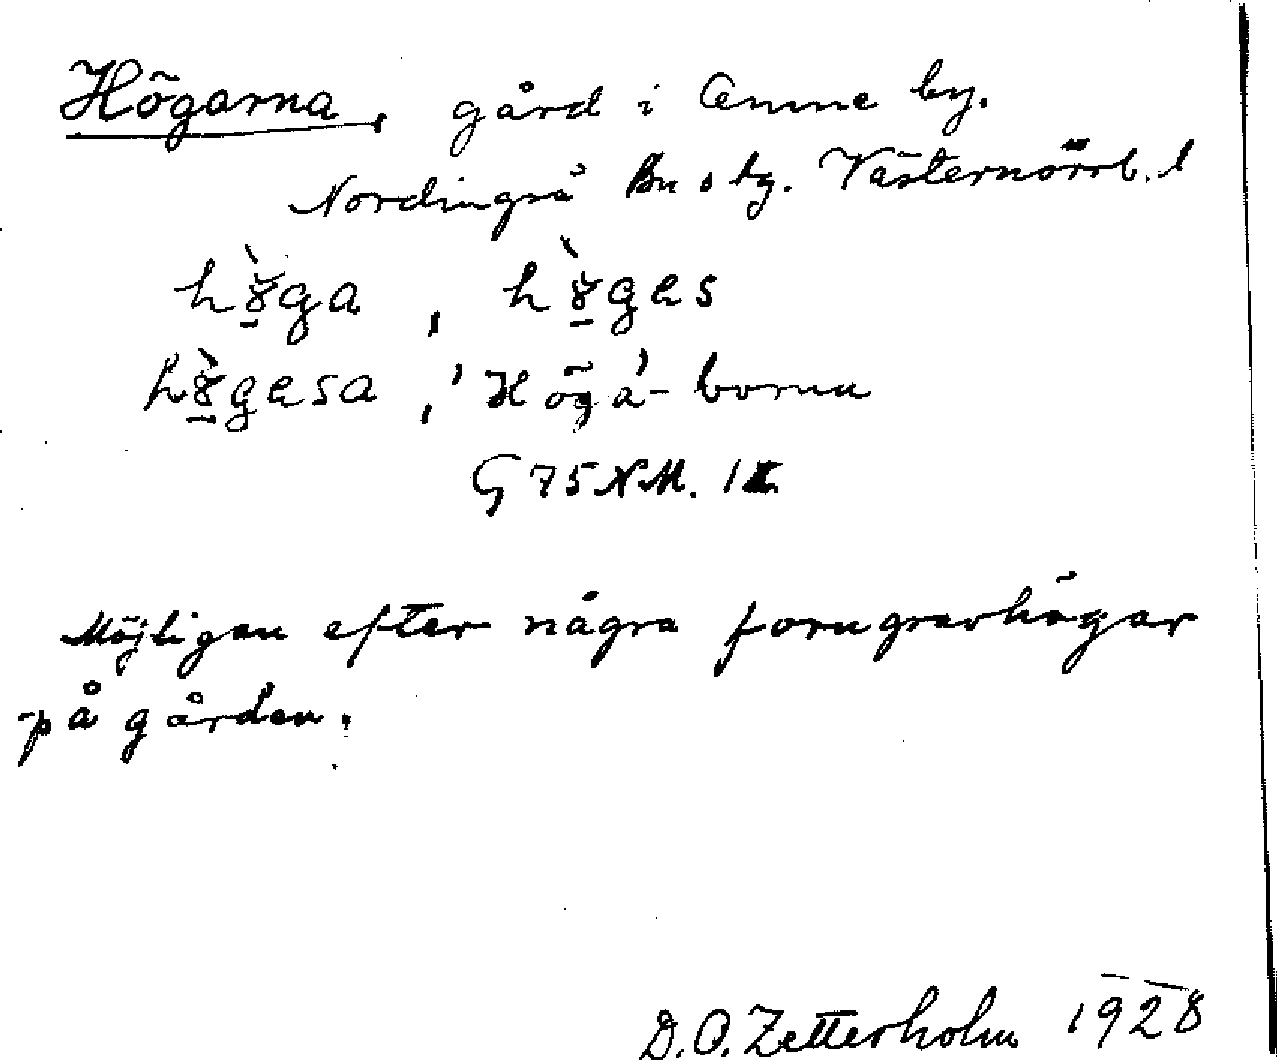 Högarna, gård i Omne by.
Nordingrå sn o tg. Västernorrl. l
hø̀ga, hø̀ges
hø̀gesa, 'Höga'-borna
G 75 NM. 1
Möjligen efter några forngravhögar
på gården.
D.O. Zetterholm 1928